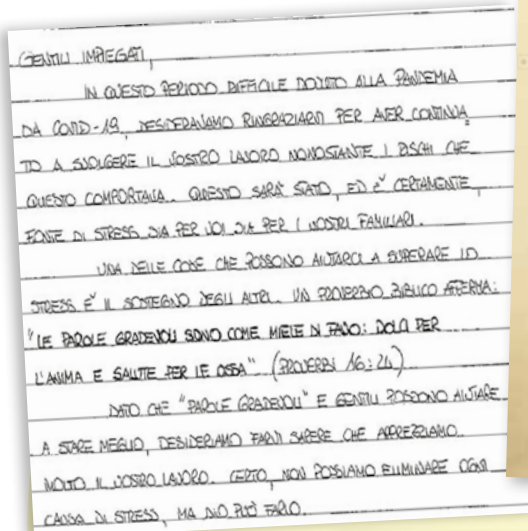 GENTILI IMPIEGATI,
IN QUESTO PERIODO DIFFICILE DOVUTO ALLA PANDEMIA
DA COVID-19, DESIDERAVAMO RINGRAZIARVI PER AVER CONTINUA
TO A SVOLGERE IL VOSTRO LAVORO NONOSTANTE I RISCHI CHE
QUESTO COMPORTAVA. QUESTO SARA' STATO, ED E' CERTAMENTE,
FONTE DI STRESS SIA PER VOI SIA PER I VOSTRI FAMILIARI.
UNA DELLE COSE CHE POSSONO AIUTARCI A SUPERARE LO
STRESS E' IL SOSTEGNO DEGLI ALTRI. UN PROVERBIO BIBLICO AFFERMA:
"LE PAROLE GRADEVOLI SONO COME MIELE DI FAVO: DOLCI PER
L'ANIMA E SALUTE PER LE OSSA" (PROVERBI 16:24)
DATO CHE "PAROLE GRADEVOLI" E GENTILI POSSONO AIUTARE
A STARE MEGLIO, DESIDERIAMO FARVI SAPERE CHE APPREZZIAMO
MOLTO IL VOSTRO LAVORO. CERTO, NON POSSIAMO ELIMINARE OGNI
CAUSA DI STRESS, MA DIO PUÒ FARLO.